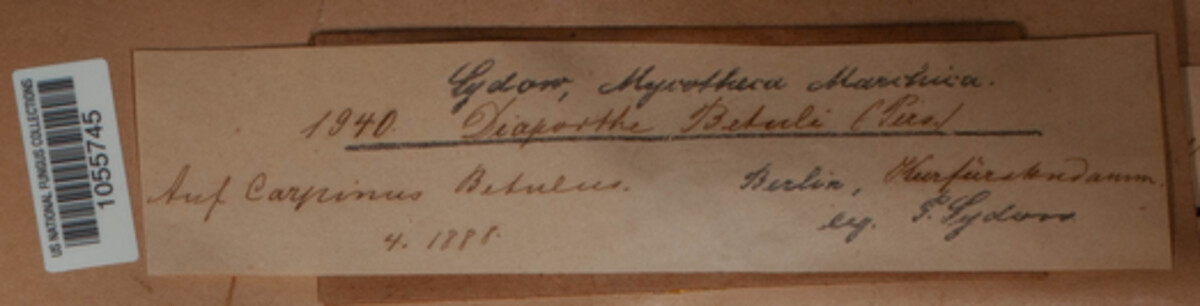 US NATIONAL FUNGUS COLLECTIONS
1055745
Sydow, Mycotheca Marchica.
1940. Diaporthe Betuli (Pers.)
Auf Carpinus Betulus. Berlin, Kurfürstendamm.
4. 1888. leg. P. Sydow